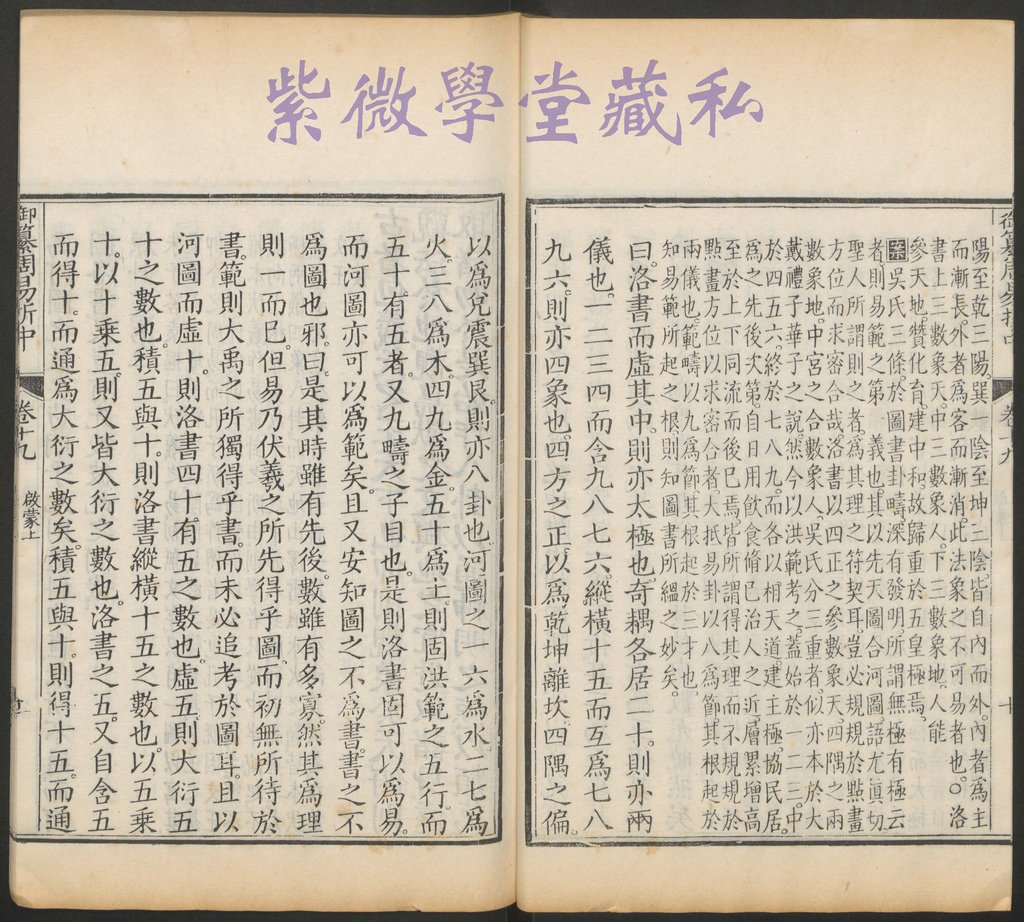 紫微學堂藏私
御纂周易折中 卷十九 十
陽至乾三陽。巽一陰至坤三陰。皆自內而外。內者爲主
而漸長。外者爲客而漸消。此法象之不可易者也。○洛
書上三數象天。中三數象人。下三數象地。人能
參天地。贊化育。建中和。故歸重於五皇極焉。
案吳氏三條。於圖書卦疇。深有發明。所謂無極有極云
者。則易範之第一義也。其以先天圖合河圖。語尤眞切。
聖人所謂則之者。爲其理之符契耳。豈必規規於點畫
方位而求密合哉。洛書以四正之參數象天。四隅之兩
數象地。中宮之合數象人。吳氏分三重者。似亦本於大
戴禮子華子之說。然今以洪範考之。蓋始於一二三。中
於四五六。終於七八九。而各以相天道。建主極。協民居。
爲之先後次第。自日用飲食修已治人之近。層累增高
至於上下同流而後已焉。皆所謂得其理。而不規規於
點畫方位以求密合者。大抵易卦以八爲節。其根起於
兩儀也。範疇以九爲節。其根起於三才也。
知易範所起之根。則知圖書所縕之妙矣。
曰。洛書而虛其中。則亦太極也。奇耦各居二十。則亦兩
儀也。一二三四而含九八七六。縱橫十五而互爲七八
九六。則亦四象也。四方之正。以爲乾坤離坎。四隅之偏。
以爲兌震巽艮。則亦八卦也。河圖之一六爲水。二七爲
火。三八爲木。四九爲金。五十爲土。則固洪範之五行。而
五十有五者。又九疇之子目也。是則洛書固可以爲易。
而河圖亦可以爲範矣。且又安知圖之不爲書。書之不
爲圖也邪。曰。是其時雖有先後。數雖有多寡。然其爲理
則一而已。但易乃伏羲之所先得乎圖。而初無所待於
書。範則大禹之所獨得乎書。而未必追考於圖耳。且以
河圖而虛十。則洛書四十有五之數也。虛五則大衍五
十之數也。積五與十。則洛書縱橫十五之數也。以五乘
十。以十乘五。則又皆大衍之數也。洛書之五。又自含五
而得十。而通爲大衍之數矣。積五與十。則得十五。而通
御纂周易折中 卷十九 啟蒙上